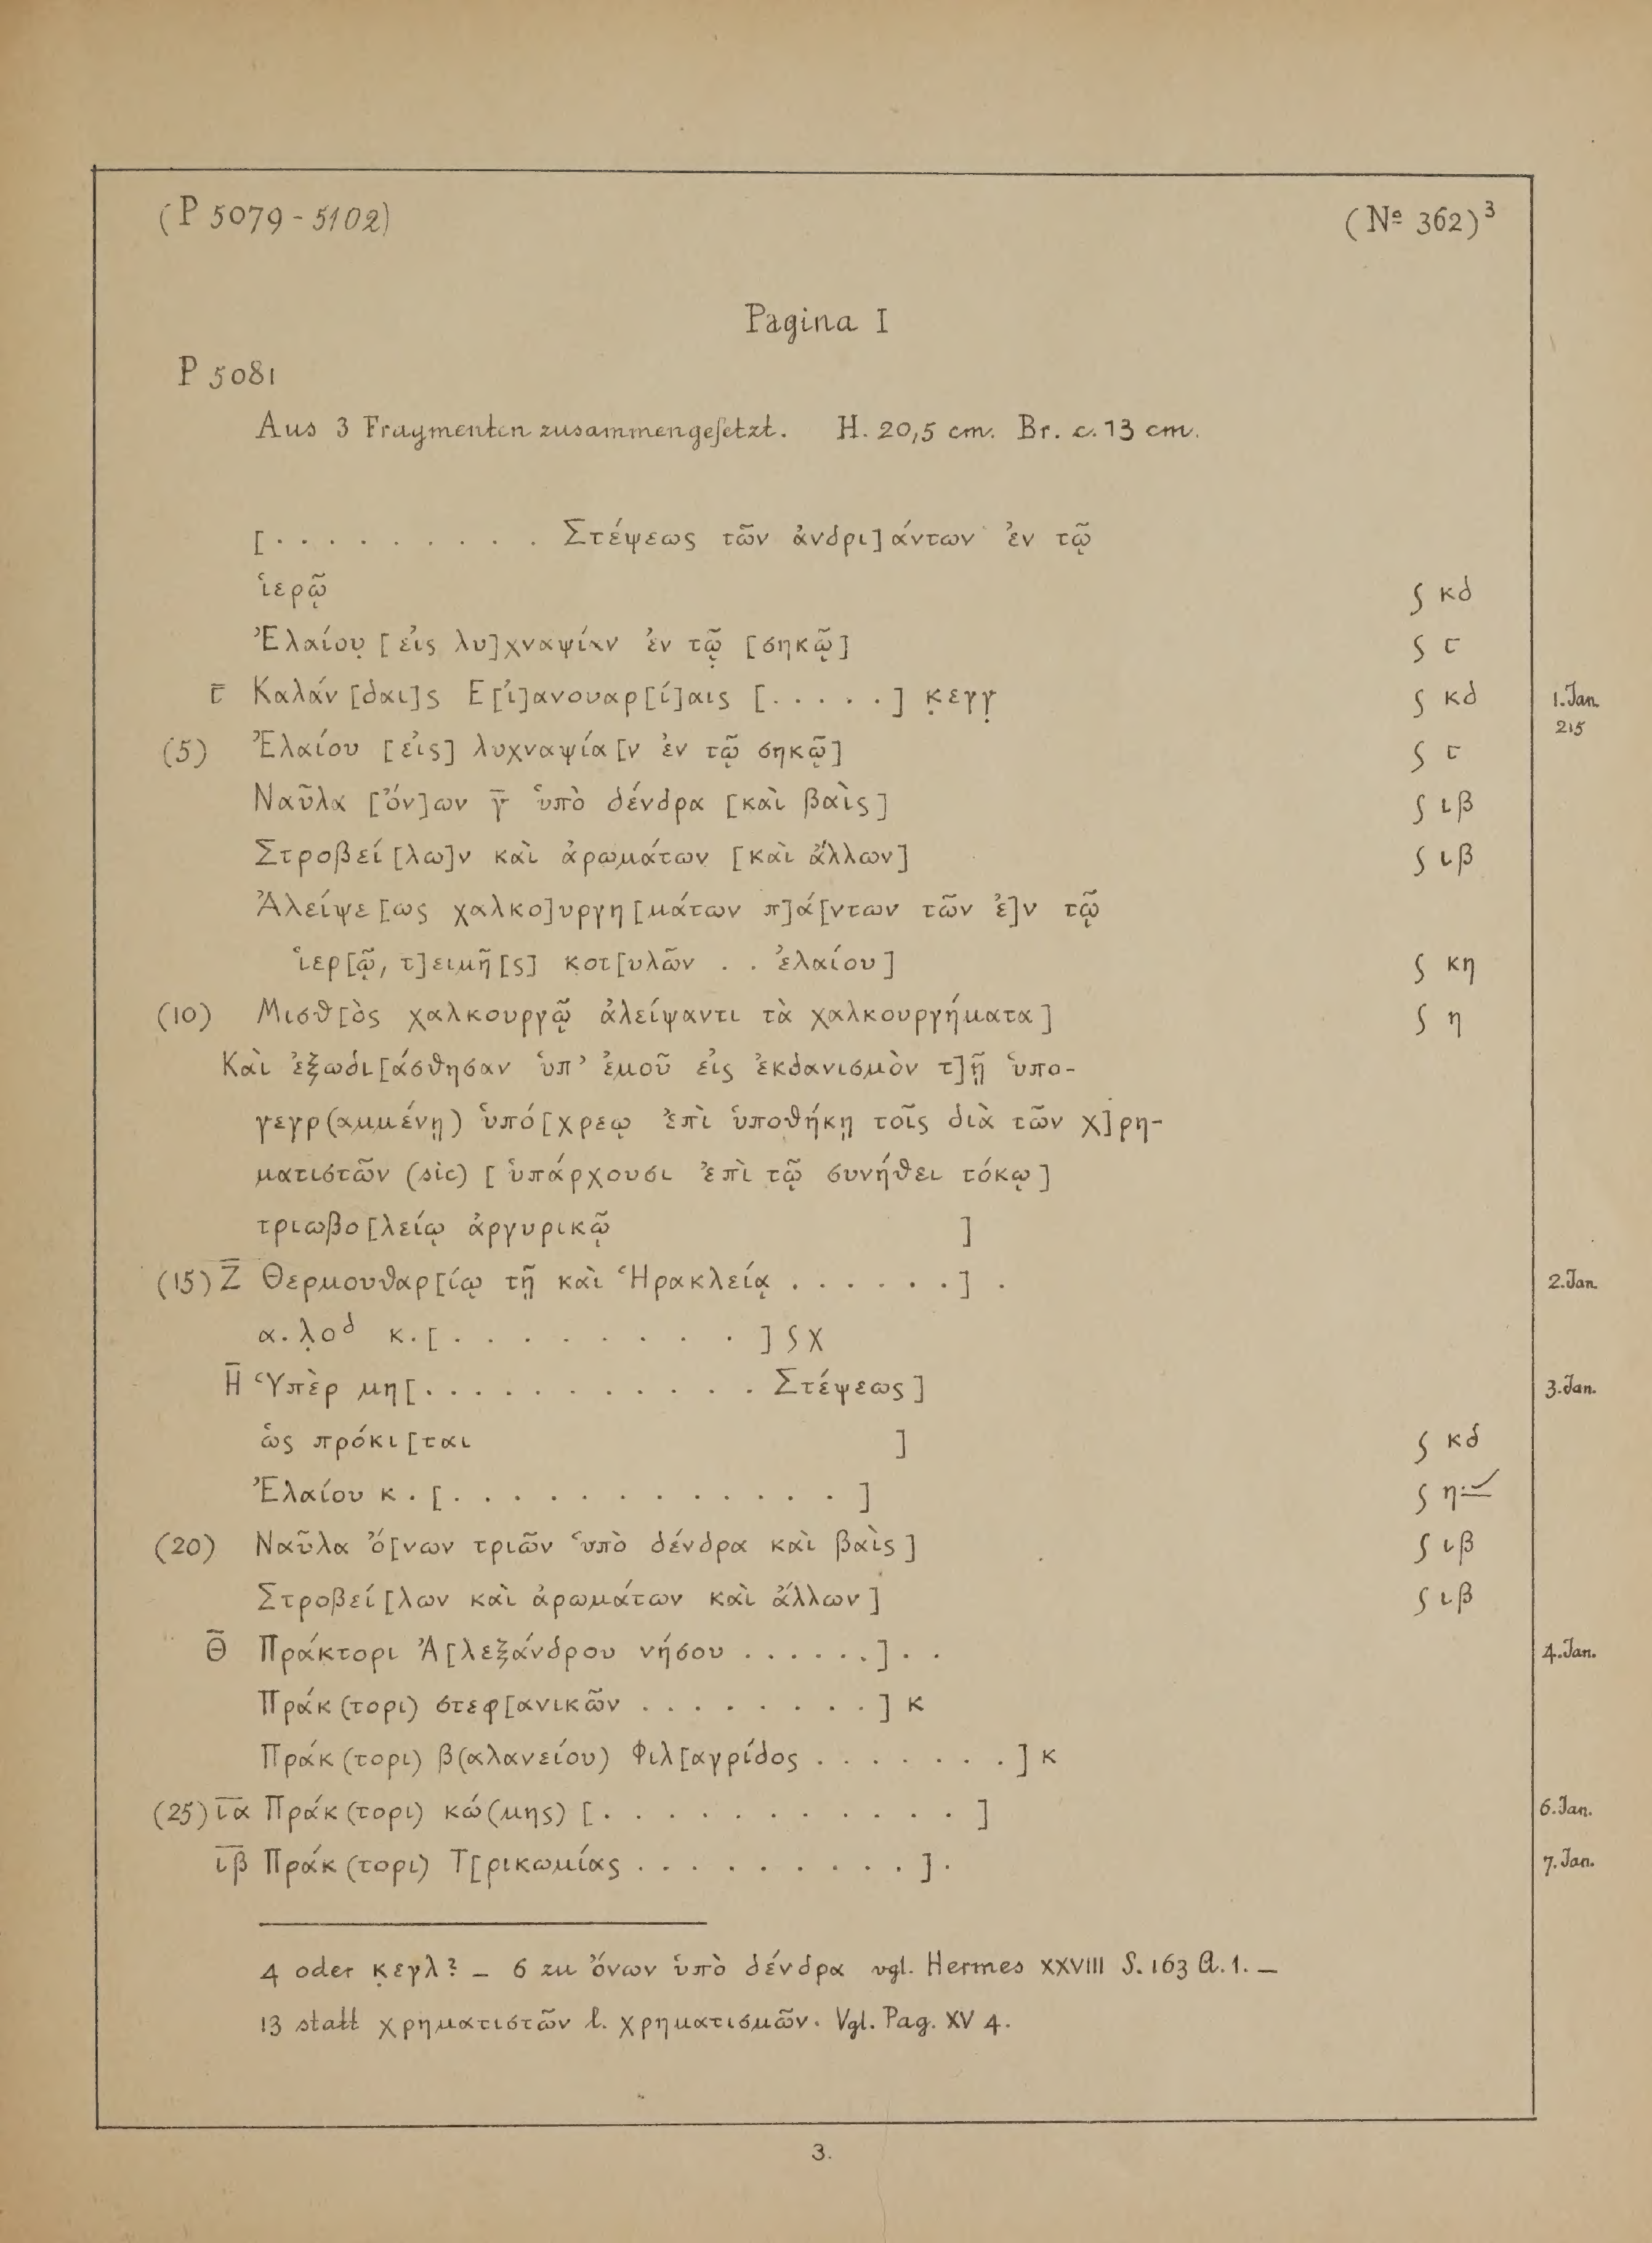 (P 5079 - 5102) (Nº 362)³
Pagina I
P 5081
Aus 3 Fragmenten zusammengesetzt. H. 20,5 cm. Br. c. 13 cm.
[. . . . . . . . . . Στέψεως τῶν ἀνδρι]άντων ἐν τῷ
ἱερῷ ʃ κδ
Ἐλαίου̣ [εἰς λυ]χναψίαν ἐν τῷ̣ [σηκῷ] ʃ ϛ
ϛ̄ Καλάν[δαι]ς Ε[ἰ]ανουαρ[ί]αις [. . . . .] κ̣εγγ̣ ʃ κδ 1. Jan. 215
(5) Ἐλαίου [εἰς] λυχναψία[ν ἐν τῷ σηκῷ] ʃ ϛ
Ναῦλα [ὄν]ων γ̄ ὑπὸ δένδρα [καὶ βαὶς] ʃ ιβ
Στροβεί[λω]ν καὶ ἀρωμάτων [καὶ ἄλλων] ʃ ιβ
Ἀλείψε[ως χαλκο]υργη[μάτων π]ά[ντων τῶν ἐ]ν τῷ
ἱερ[ῷ, τ]ειμῆ[ς] κοτ[υλῶν . . ἐλαίου] ʃ κη
(10) Μισθ[ὸς χαλκουργῷ ἀλείψαντι τὰ χαλκουργήματα] ʃ η
Καὶ ἐξωδι[άσθησαν ὑπ' ἐμοῦ εἰς ἐκδανισμὸν τ]ῇ ὑπο-
γεγρ(αμμένῃ) ὑπό[χρεῳ ἐπὶ ὑποθήκῃ τοῖς διὰ τῶν χ]ρη-
ματιστῶν (sic) [ὑπάρχουσι ἐπὶ τῷ συνήθει τόκῳ]
τριωβο[λείῳ ἀργυρικῷ ]
(15) Ζ̄ Θερμουθαρ[ίῳ τῇ καὶ Ἡρακλείᾳ . . . . . .] . 2. Jan.
α.λ̣οᵟ κ.[. . . . . . . . .] ʃ χ
Η̄ Ὑπὲρ μη[. . . . . . . . . . . . Στέψεως] 3. Jan.
ὡς πρόκι[ται ] ʃ κδ
Ἐλαίου κ.[. . . . . . . . . . . . .] ʃ η
(20) Ναῦλα ὄ[νων τριῶν ὑπὸ δένδρα καὶ βαὶς] ʃ ιβ
Στροβεί[λων καὶ ἀρωμάτων καὶ ἄλλων] ʃ ιβ
Θ̄ Πράκτορι Ἀ[λεξάνδρου νήσου . . . . . .] . . 4. Jan.
Πράκ(τορι) στεφ[ανικῶν . . . . . . . .] κ
Πράκ(τορι) β(αλανείου) Φιλ[αγρίδος . . . . . . .] κ
(25) ῑᾱ Πράκ(τορι) κώ(μης) [. . . . . . . . . . .] 6. Jan.
ῑβ̄ Πράκ(τορι) Τ[ρικωμίας . . . . . . . . . .] . 7. Jan.
4 oder κ̣εγλ? – 6 zu ὄνων ὑπὸ δένδρα vgl. Hermes XXVIII S. 163 A. 1. –
13 statt χρηματιστῶν l. χρηματισμῶν. Vgl. Pag. XV 4.
3.